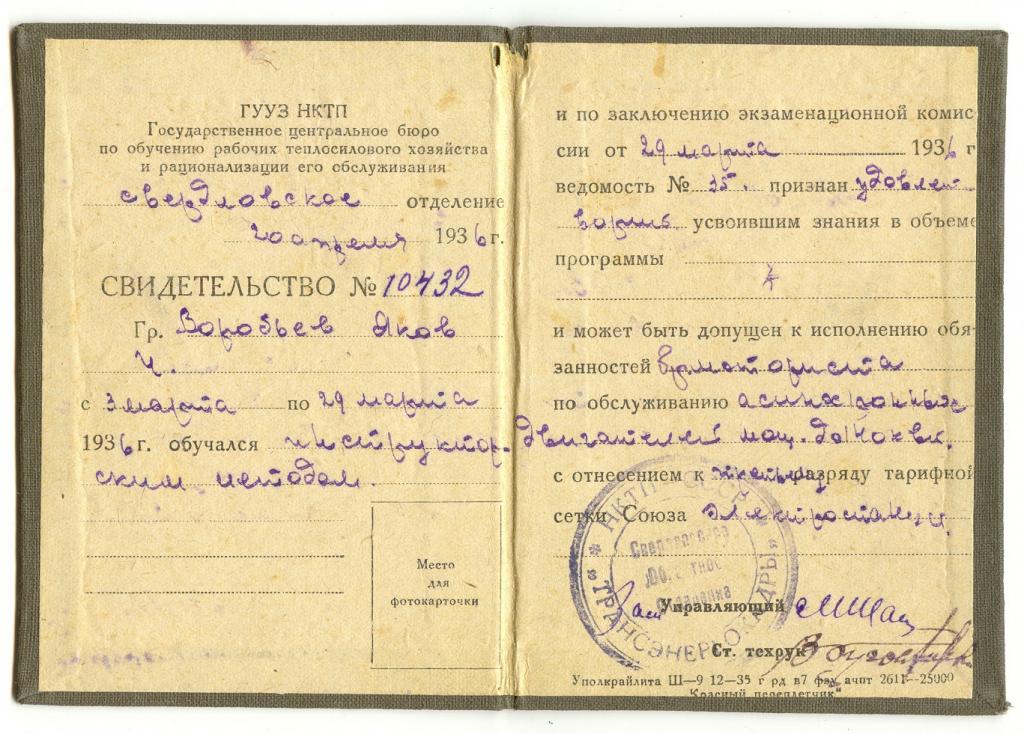 ГУУЗ НКТП
Государственное центральное бюро
по обучению рабочих теплосилового хозяйства
и рационализации его обслуживания
свердловское отделение
20 апреля 1936 г.
СВИДЕТЕЛЬСТВО № 10432
Гр. Воробьев Яков
с 3 марта по 29 марта
1936 г. обучался инструктор-
ским методом.
Место
для
фотокарточки
и по заключению экзаменационной комис
сии от 29 марта 1936 г
ведомость № 15. признан удовлет
усвоившим знания в объеме
программы
и может быть допущен к исполнению обя-
занностей моториста
по обслуживанию асинхронных
двигателей мощ. до 100 квт.
с отнесением к разряду тарифной
сетки Союза электростанц
НКТП СССР
Свердловское
Областное
Отделение
"ТРАНСЭНЕРГОКАДРЫ"
Зам Управляющий
Ст. техрук
Уполкрайлита Ш—9 12—35 г
2611—25000
"Красный переплетчик"